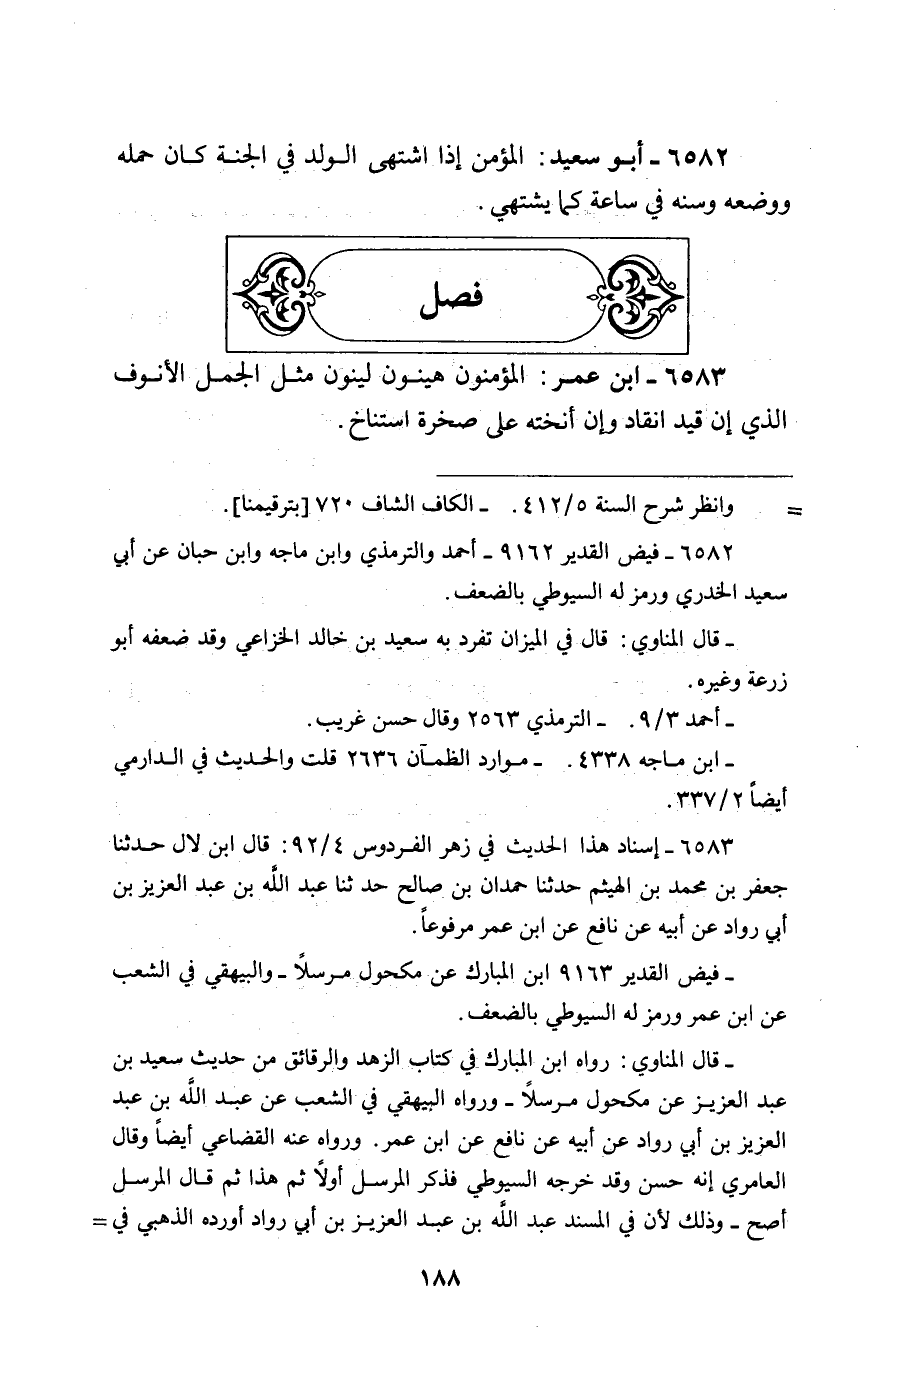 ٦٥٨٢ - أبو سعيد: المؤمن إذا اشتهى الولد في الجنة كان حمله
ووضعه وسنه في ساعة كما يشتهي.
فصل
٦٥٨٣ - ابن عمر: المؤمنون هينون لينون مثل الجمل الأنوف
الذي إن قيد انقاد وإن أنخته على صخرة استناخ.
= وانظر شرح السنة ٤١٢/٥. - الكاف الشاف ٧٢٠ [بترقيمنا].
٦٥٨٢ - فيض القدير ٩١٦٢ - أحمد والترمذي وابن ماجه وابن حبان عن أبي
سعيد الخدري ورمز له السيوطي بالضعف.
- قال المناوي: قال في الميزان تفرد به سعيد بن خالد الخزاعي وقد ضعفه أبو
زرعة وغيره.
- أحمد ٩/٣. - الترمذي ٢٥٦٣ وقال حسن غريب.
- ابن ماجه ٤٣٣٨. - موارد الظمآن ٢٦٣٦ قلت والحديث في الدارمي
أيضاً ٣٣٧/٢.
٦٥٨٣ - إسناد هذا الحديث في زهر الفردوس ٩٢/٤: قال ابن لال حدثنا
جعفر بن محمد بن الهيثم حدثنا حمدان بن صالح حد ثنا عبد اللَّه بن عبد العزيز بن
أبي رواد عن أبيه عن نافع عن ابن عمر مرفوعاً.
- فيض القدير ٩١٦٣ ابن المبارك عن مكحول مرسلاً - والبيهقي في الشعب
عن ابن عمر ورمز له السيوطي بالضعف.
- قال المناوي: رواه ابن المبارك في كتاب الزهد والرقائق من حديث سعيد بن
عبد العزيز عن مكحول مرسلاً - ورواه البيهقي في الشعب عن عبد اللَّه بن عبد
العزيز بن أبي رواد عن أبيه عن نافع عن ابن عمر. ورواه عنه القضاعي أيضاً وقال
العامري إنه حسن وقد خرجه السيوطي فذكر المرسل أولاً ثم هذا ثم قال المرسل
أصح - وذلك لأن في المسند عبد اللَّه بن عبد العزيز بن أبي رواد أورده الذهبي في =
١٨٨